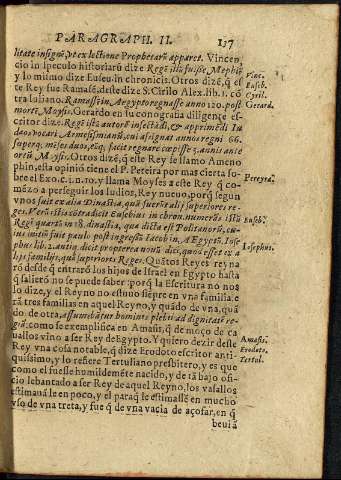 PARAGRAPH. II. 137
litate insignũ, vt ex lectione Prophetarũ apparet. Vincen,
cio in speculo historiarũ dize Regẽ illũ fuisse Mephis
y lo mismo dize Euseu. in chronicis. Otros dizẽ, q̃ es
te Rey fue Ramasé, deste dize S. Cirilo Alex. lib. 1. cõ
tra Iuliano. Ramassẽ in Aegypto regnasse anno 120. pos
mortẽ Moysi. Gerardo en su conografia diligente es-
critor dize. Regẽ istũ autorẽ insectãdi, & apprimẽdi Iu
daos, vocari Armesesmianũ, cui assignat annos regni 66.
superq; mẽses duos, eũq, facit regnare cœpisse 3. annis ante
ortũ Moysi. Otros dizẽ, q̃ este Rey se llamo Ameno
phin, esta opinió tiene el P. Pereira por mas cierta so-
bre el Exo. c. 1. n. 10. y llama Moyses a este Rey q̃ co-
mẽzo a perseguir los Iudios, Rey nueuo, porq̃ segun
vnos fuit ex alia Dinastia, quã fuerũt alij superiores re-
ges. Verũ istis cõtradicit Eusebius in chron. numerãs istũ
Regẽ quartũ in 18. dinastia, quæ dicta est Politanorũ, cu-
ius initiũ fuit paulo post ingressũ Iacob in Aegyptũ. Iose
phus lib. 2. antiq. dicit propterea nouũ dici, quòd esset ex a
lijs familijs, quã superiores Reges. Quãtos Reyes reyna
rõ desde q̃ entrarõ los hijos de Israel en Egypto hasta
q̃ saliero no se puede saber: porq̃ la Escritura no nos
lo dize, y el Reyno no estuuo siẽpre en vna familia, e
rã tres familias en aquel Reyno, y quãdo de vna, quã
do de otra, assumebãtur homines plebei ad dignitatẽ re-
giã: como se exemplifica en Amasis, q̃ de moço de ca
uallos vino a ser Rey de Egypto. Y quiero dezir deste
Rey vna cosa notable, q̃ dize Erodoto escritor anti-
quissimo, y lo refiere Tertuliano presbitero, y es que
como el fuesse humildemẽte nacido, y de tã bajo ofi-
cio lebantado a ser Rey de aquel Reyno, los vasallos
estimauã le en poco, y el paraq̃ le estimassẽ en mucho
vso de vna treta, y fue q̃ de vna vacia de açofar, en q̃
beuiã
Vinc.
Euseb.
Cyril.
Gerard.
Pereyra.
Euseb.
Iosephus.
Amasis.
Erodoto.
Tertul.